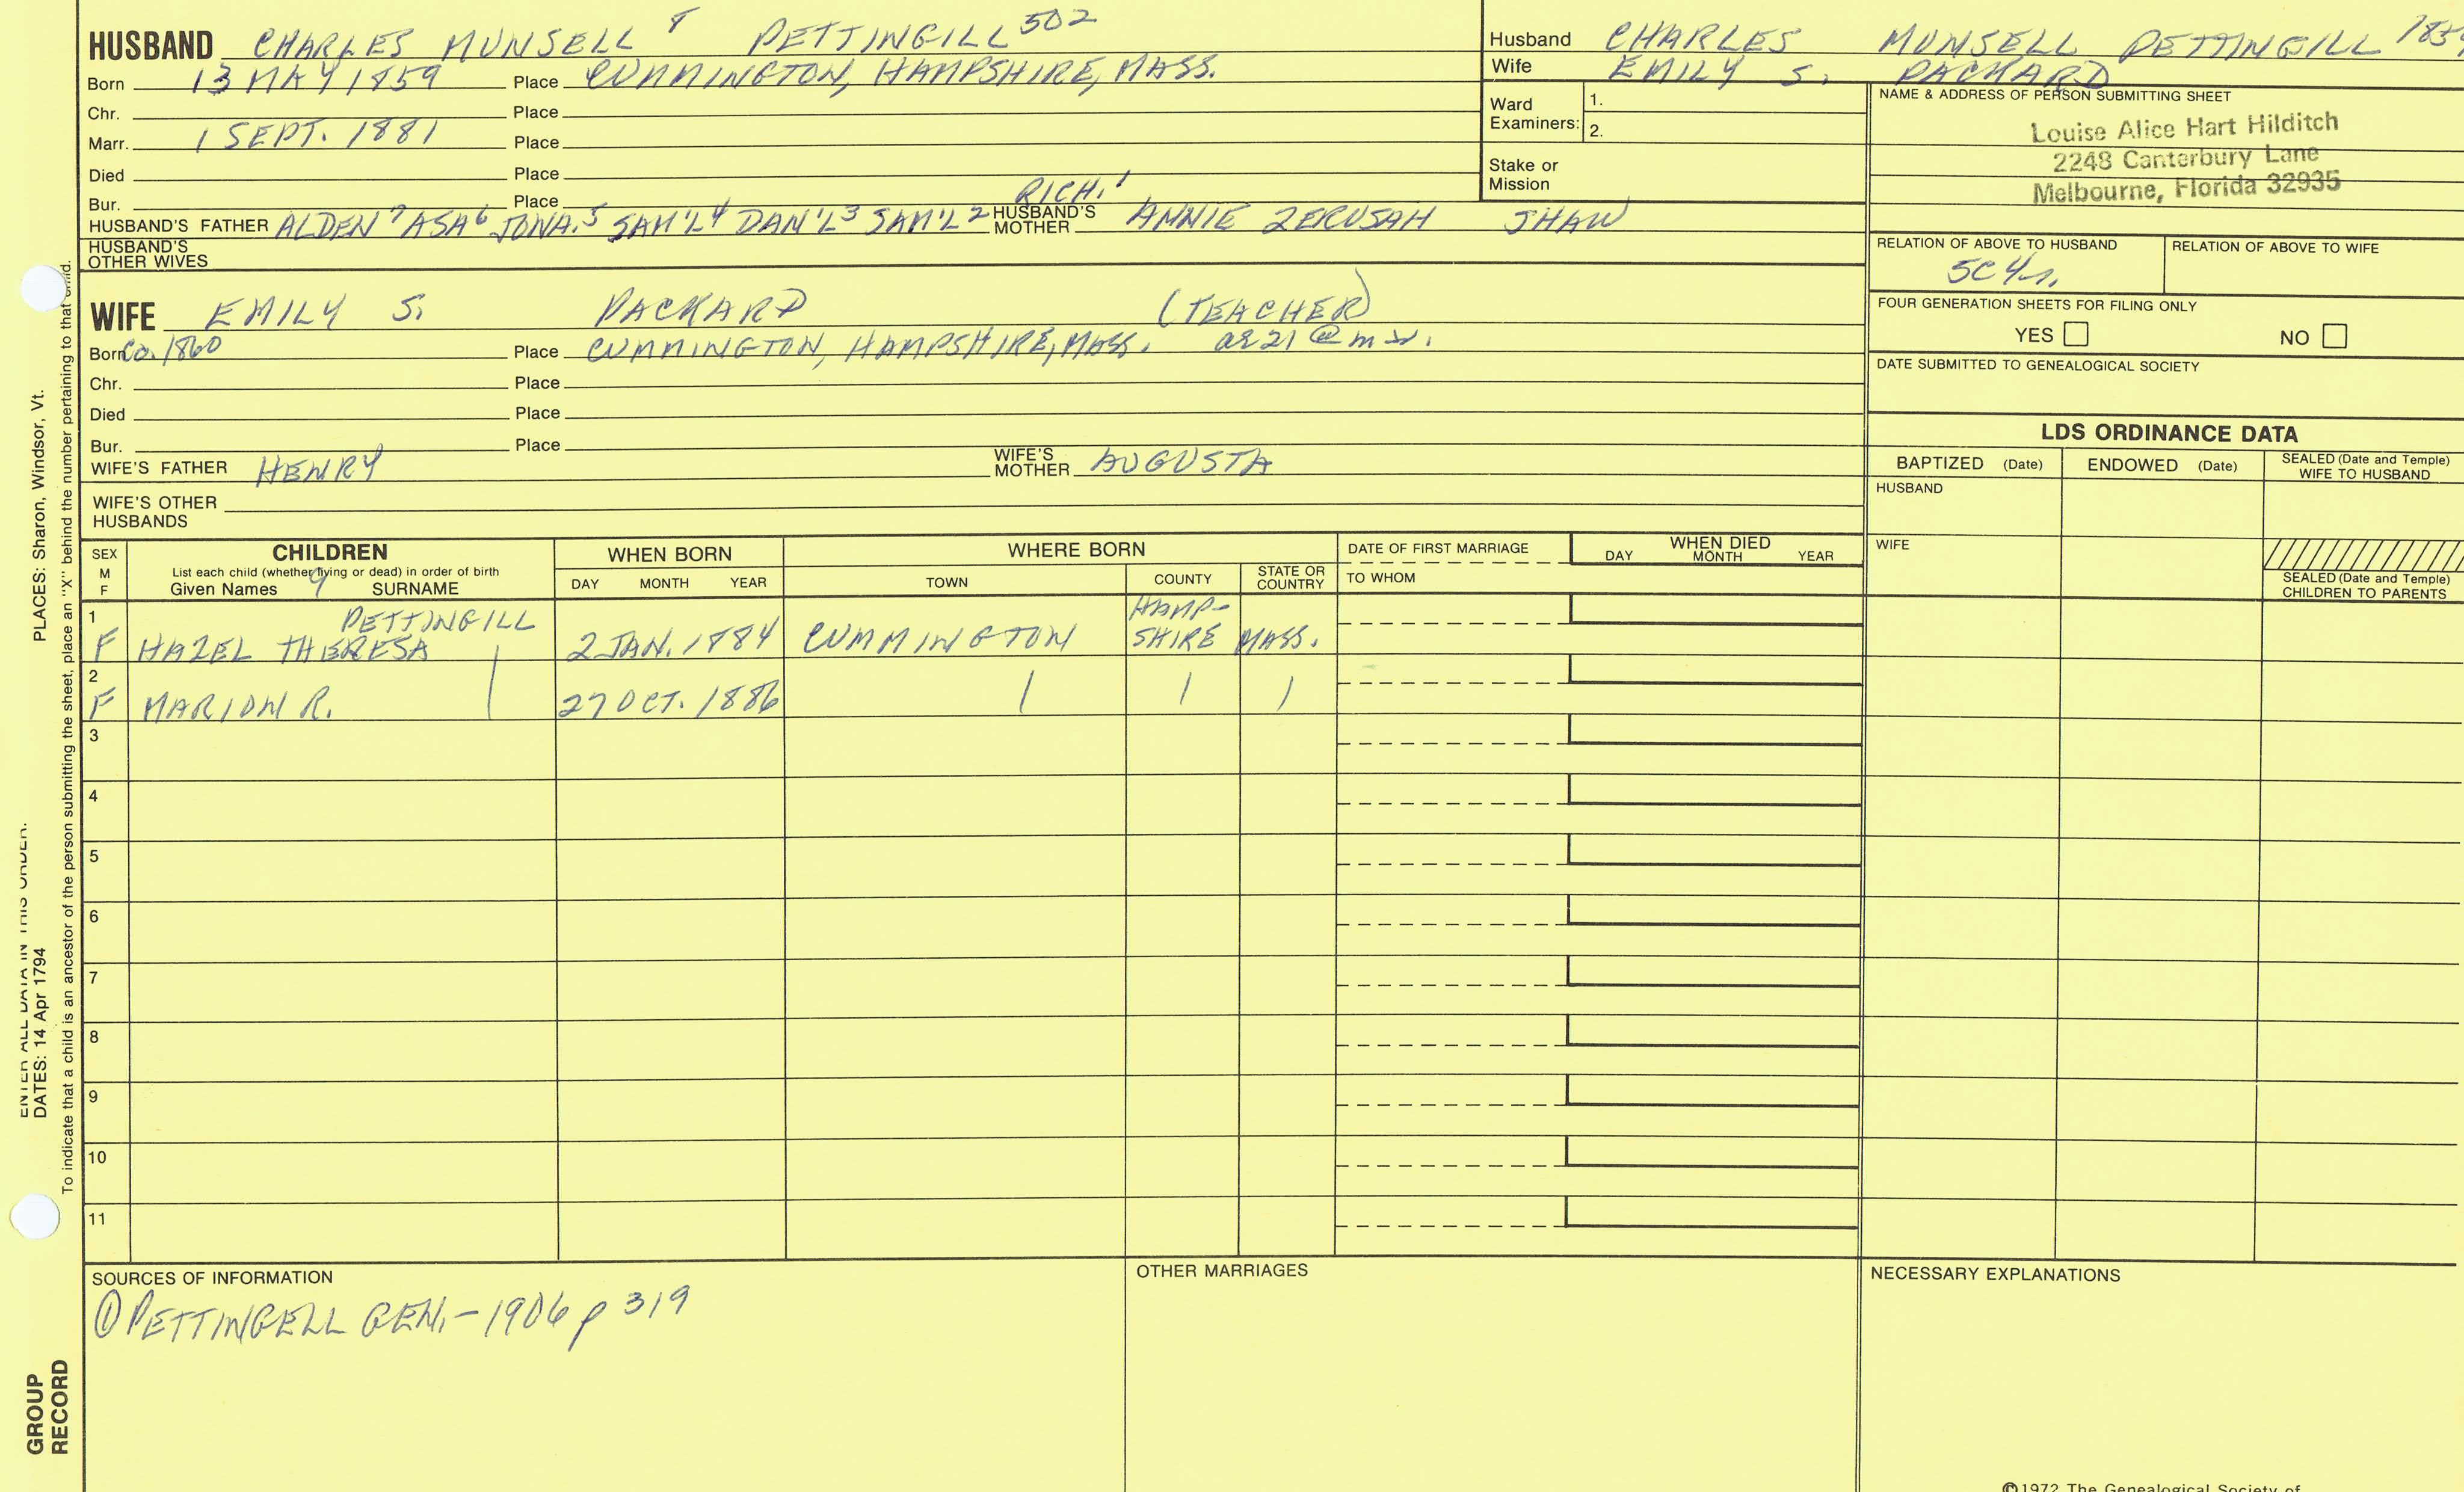 HUSBAND CHARLES MUNSELL 8 PETTINGILL 502
Born 13 MAY 1859 Place CUMMINGTON, HAMPSHIRE, MASS.
Chr. Place
Marr. 1 SEPT. 1881 Place
Died Place
Bur. Place
RICH. 1
HUSBAND'S FATHER ALDEN 7 ASA 6 JONA. 5 SAM'L 4 DAN'L 3 SAM'L 2 HUSBAND'S MOTHER ANNIE ZERUSAH SHAW
HUSBAND'S OTHER WIVES
Husband CHARLES MUNSELL PETTINGILL
Wife EMILY S. PACKARD
Ward Examiners: 1.
2.
Stake or Mission
NAME & ADDRESS OF PERSON SUBMITTING SHEET
Louise Alice Hart Hilditch
2248 Canterbury Lane
Melbourne, Florida 32935
RELATION OF ABOVE TO HUSBAND RELATION OF ABOVE TO WIFE
5C4r.
FOUR GENERATION SHEETS FOR FILING ONLY
YES NO
DATE SUBMITTED TO GENEALOGICAL SOCIETY
WIFE EMILY S. PACKARD (TEACHER)
Born Ca. 1860 Place CUMMINGTON, HAMPSHIRE, MASS. ae 21 @ m
Chr. Place
Died Place
Bur. Place
WIFE'S FATHER HENRY WIFE'S MOTHER AUGUSTA
WIFE'S OTHER HUSBANDS
LDS ORDINANCE DATA
BAPTIZED (Date) ENDOWED (Date) SEALED (Date and Temple) WIFE TO HUSBAND
HUSBAND
WIFE
SEALED (Date and Temple) CHILDREN TO PARENTS
SEX M F
CHILDREN
List each child (whether living or dead) in order of birth
Given Names 9 SURNAME
WHEN BORN
DAY MONTH YEAR
WHERE BORN
TOWN COUNTY STATE OR COUNTRY
DATE OF FIRST MARRIAGE
TO WHOM
WHEN DIED
DAY MONTH YEAR
1 PETTINGILL HAMP-
F HAZEL THERESA 2 JAN. 1884 CUMMINGTON SHIRE MASS.
2
F MARION R. | 27 OCT. 1886 | | |
3
4
5
6
7
8
9
10
11
SOURCES OF INFORMATION
① PETTINGELL GEN. - 1906 p 319
OTHER MARRIAGES
NECESSARY EXPLANATIONS
©1972 The Genealogical Society of
ENTER ALL DATA IN THIS ORDER.
DATES: 14 Apr 1794 PLACES: Sharon, Windsor, Vt.
To indicate that a child is an ancestor of the person submitting the sheet, place an "X" behind the number pertaining to that child.
GROUP
RECORD